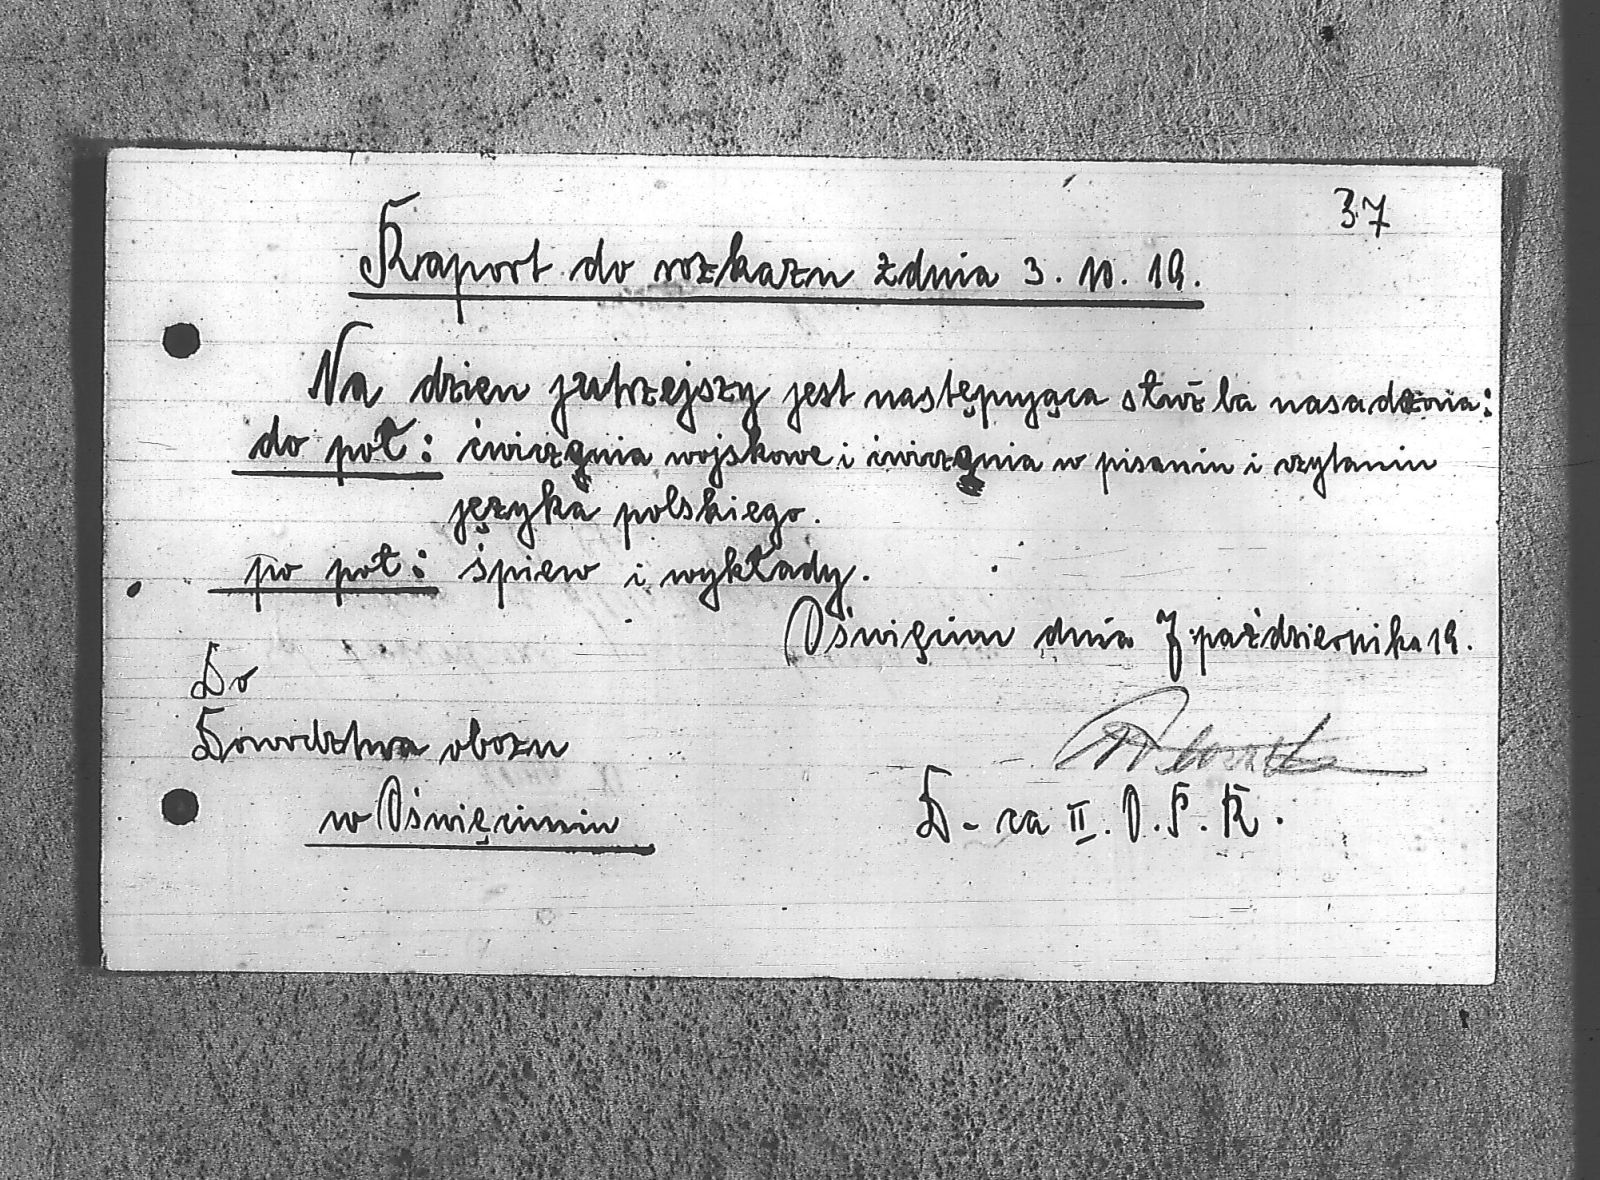 37
Raport do rozkazu z dnia 3. 10. 19.
Na dzien jutrzejszy jest następująca służba nasadzona:
do poł: ćwiczęnia wojskowe i ćwiczęnia w pisaniu i czytaniu
języka polskiego.
po poł: śpiew i wykłady.
Oświęcim dnia 7 października 19.
Do
Dowodztwa obozu
w Oświęcimiu
D-ca II. O.P.K.